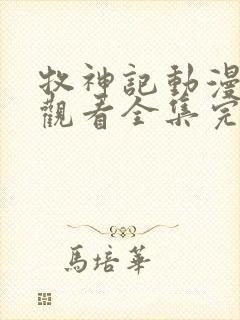 牧神記動漫
觀看全集完
馬培華